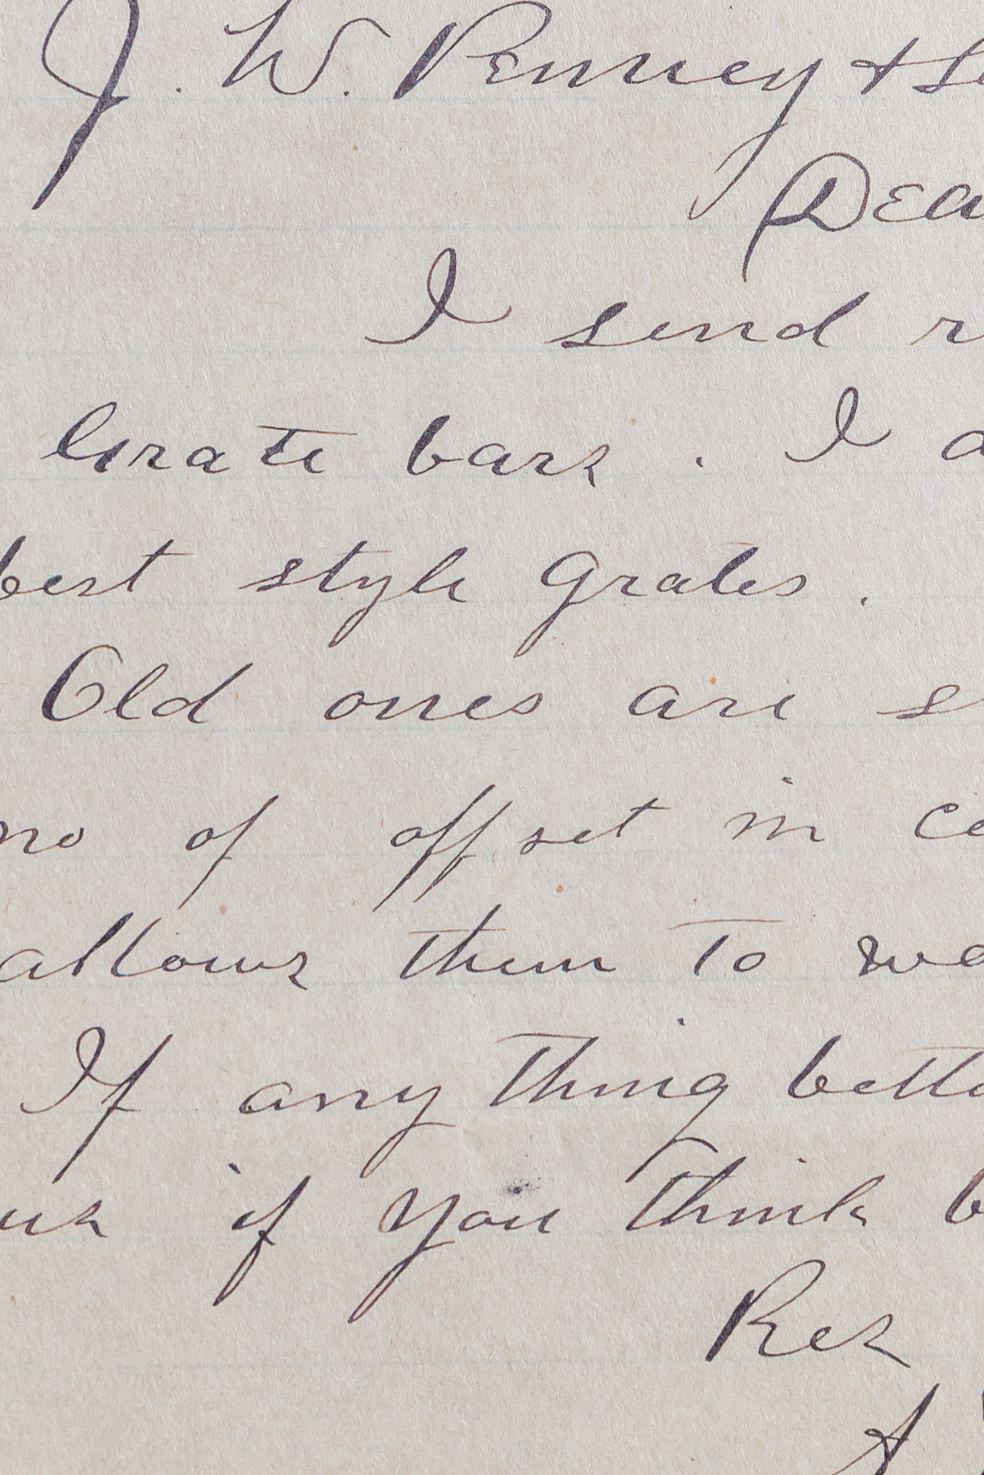 J. W. Penney +
Dea
I send
Grate bars. I a
best style Grates.
Old ones are s
no of offset in ce
allows them to we
If any thing bette
us if you think b
Res
A